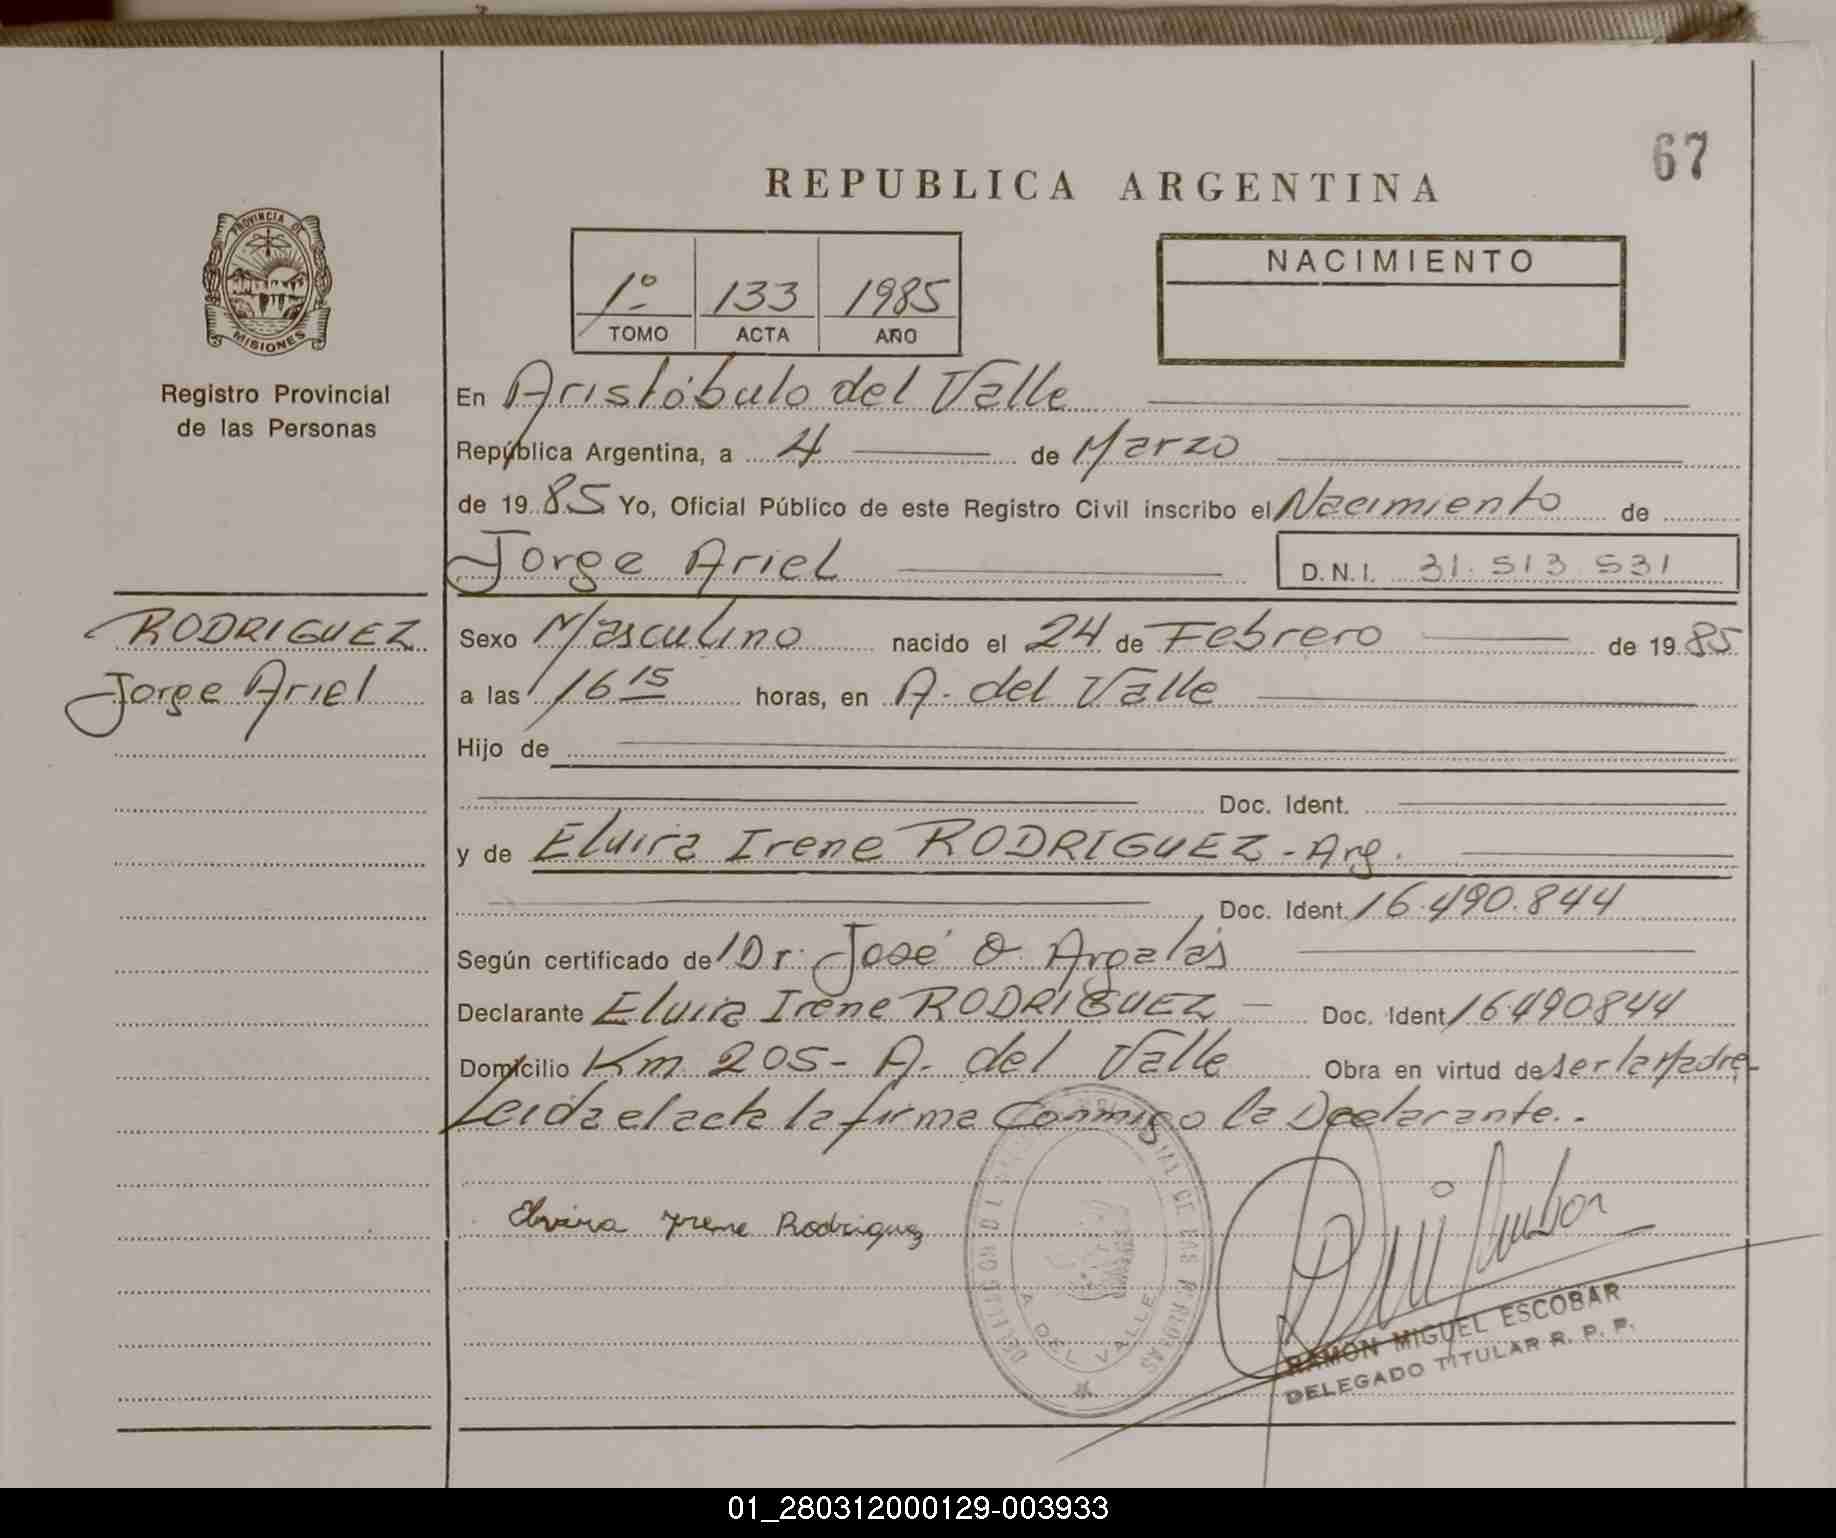 67
REPUBLICA ARGENTINA
PROVINCIA DE
MISIONES
1º 133 1985
TOMO ACTA AÑO
NACIMIENTO
Registro Provincial
de las Personas
En Aristóbulo del Valle
República Argentina, a 4 de Marzo
de 19 85 Yo, Oficial Público de este Registro Civil inscribo el Nacimiento de
Jorge Ariel D.N.I. 31.513.531
RODRIGUEZ
Jorge Ariel
Sexo Masculino nacido el 24 de Febrero de 19 85
a las 16 15 horas, en A. del Valle
Hijo de
Doc. Ident.
y de Elvira Irene RODRIGUEZ - Arg.
Doc. Ident. 16.490.844
Según certificado de Dr. José O. Argalas
Declarante Elvira Irene RODRIGUEZ - Doc. Ident 16490844
Domicilio Km 205 - A. del Valle Obra en virtud de ser la Madre
Leida el acta la firma Conmigo la Declarante.-
Elvira Yrene Rodriguez
DE LAS PERSONAS
A. DEL VALLE
RAMON MIGUEL ESCOBAR
DELEGADO TITULAR R. P. P.
01_280312000129-003933